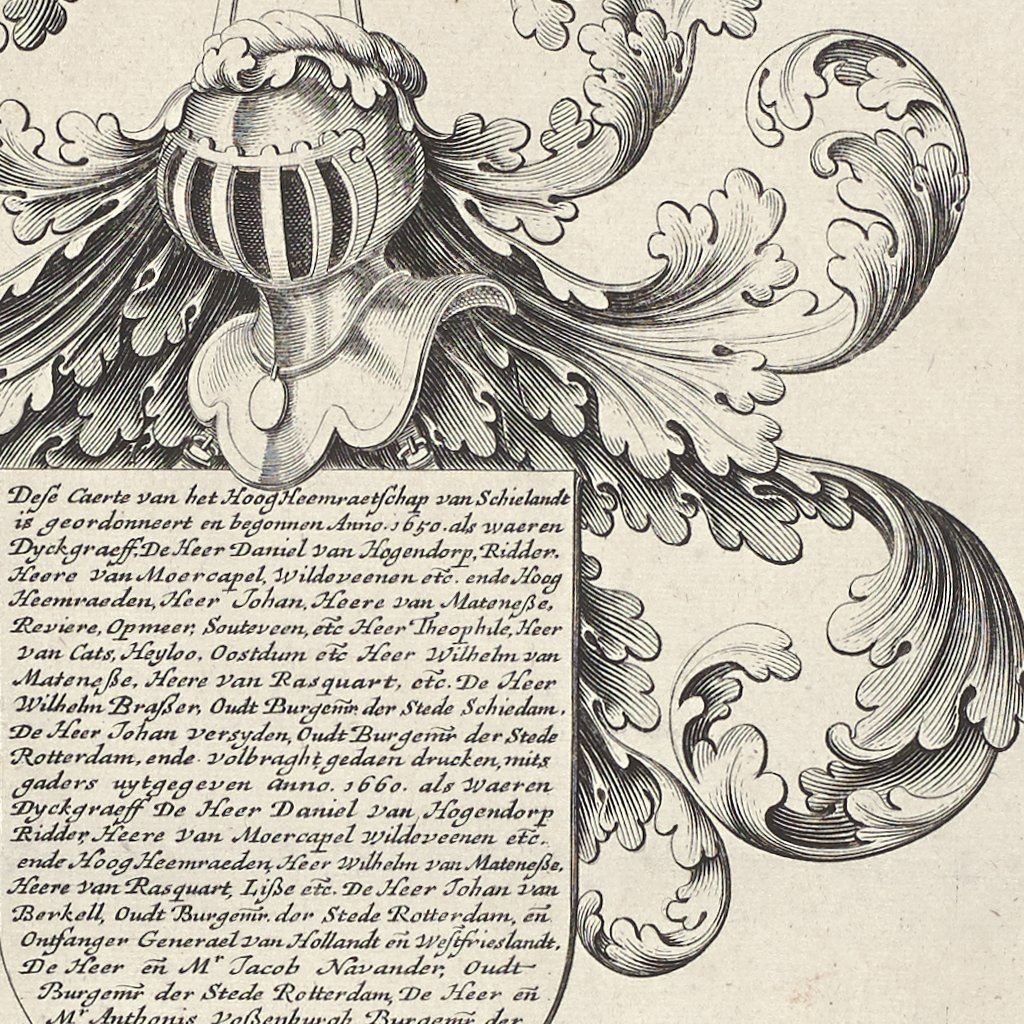 Dese Caerte van het HoogHeemraetschap van Schielandt
is geordonneert en begonnen Anno. 1650. als waeren
Dyckgraeff, De Heer Daniel van Hogendorp, Ridder.
Heere van Moercapel, Wildeveenen etc. ende Hoog
Heemraeden, Heer Johan, Heere van Mateneße,
Reviere, Opmeer, Souteveen, etc Heer Theophile, Heer
van Cats, Heyloo, Oostdum etc Heer Wilhelm van
Mateneße, Heere van Rasquart, etc. De Heer
Wilhelm Braßer, Oudt Burgem̄r der Stede Schiedam,
De Heer Johan versyden, Oudt Burgem̄r der Stede
Rotterdam, ende volbraght gedaen drucken, mits
gaders uytgegeven anno. 1660. als waeren
Dyckgraeff De Heer Daniel van Hogendorp
Ridder, Heere van Moercapel Wildeveenen etc.
ende Hoog Heemraeden, Heer Wilhelm van Mateneße,
Heere van Rasquart, Liße etc. De Heer Johan van
Berkell, Oudt Burgem̄r. der Stede Rotterdam, en̄
Ontfanger Generael van Hollandt en̄ Westfrieslandt,
De Heer en̄ Mr Jacob Navander, Oudt
Burgem̄r der Stede Rotterdam, De Heer en̄
Mr Anthonis Voßenburgh Burgem̄r der